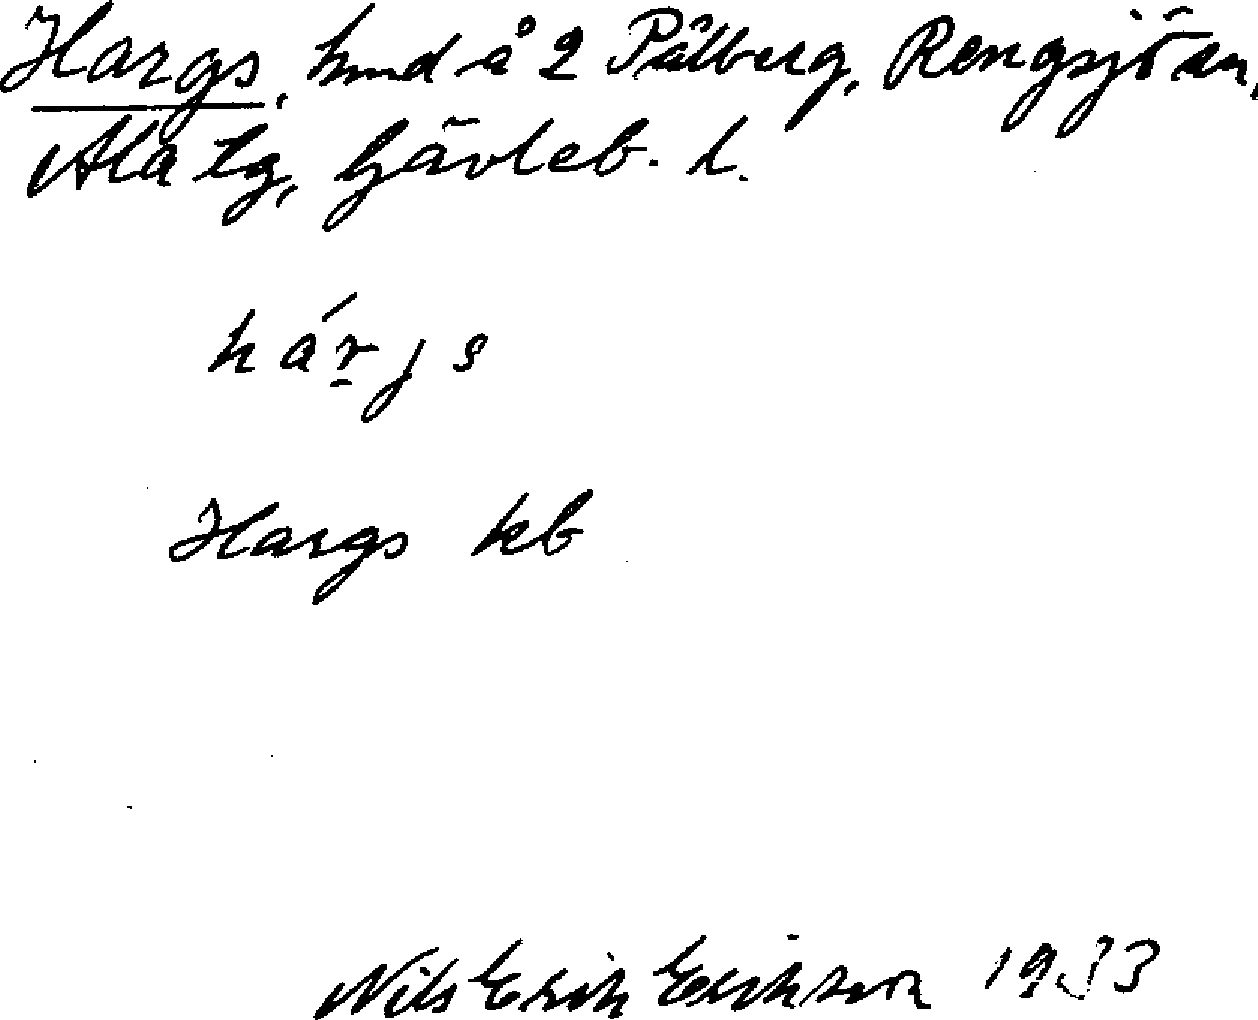 Hargs, hmd å 2 Pålberg, Rengsjö sn,
Ala tg, Gävleb. l.
hár̠js
Hargs kb
Nils Erik Erikson 1933